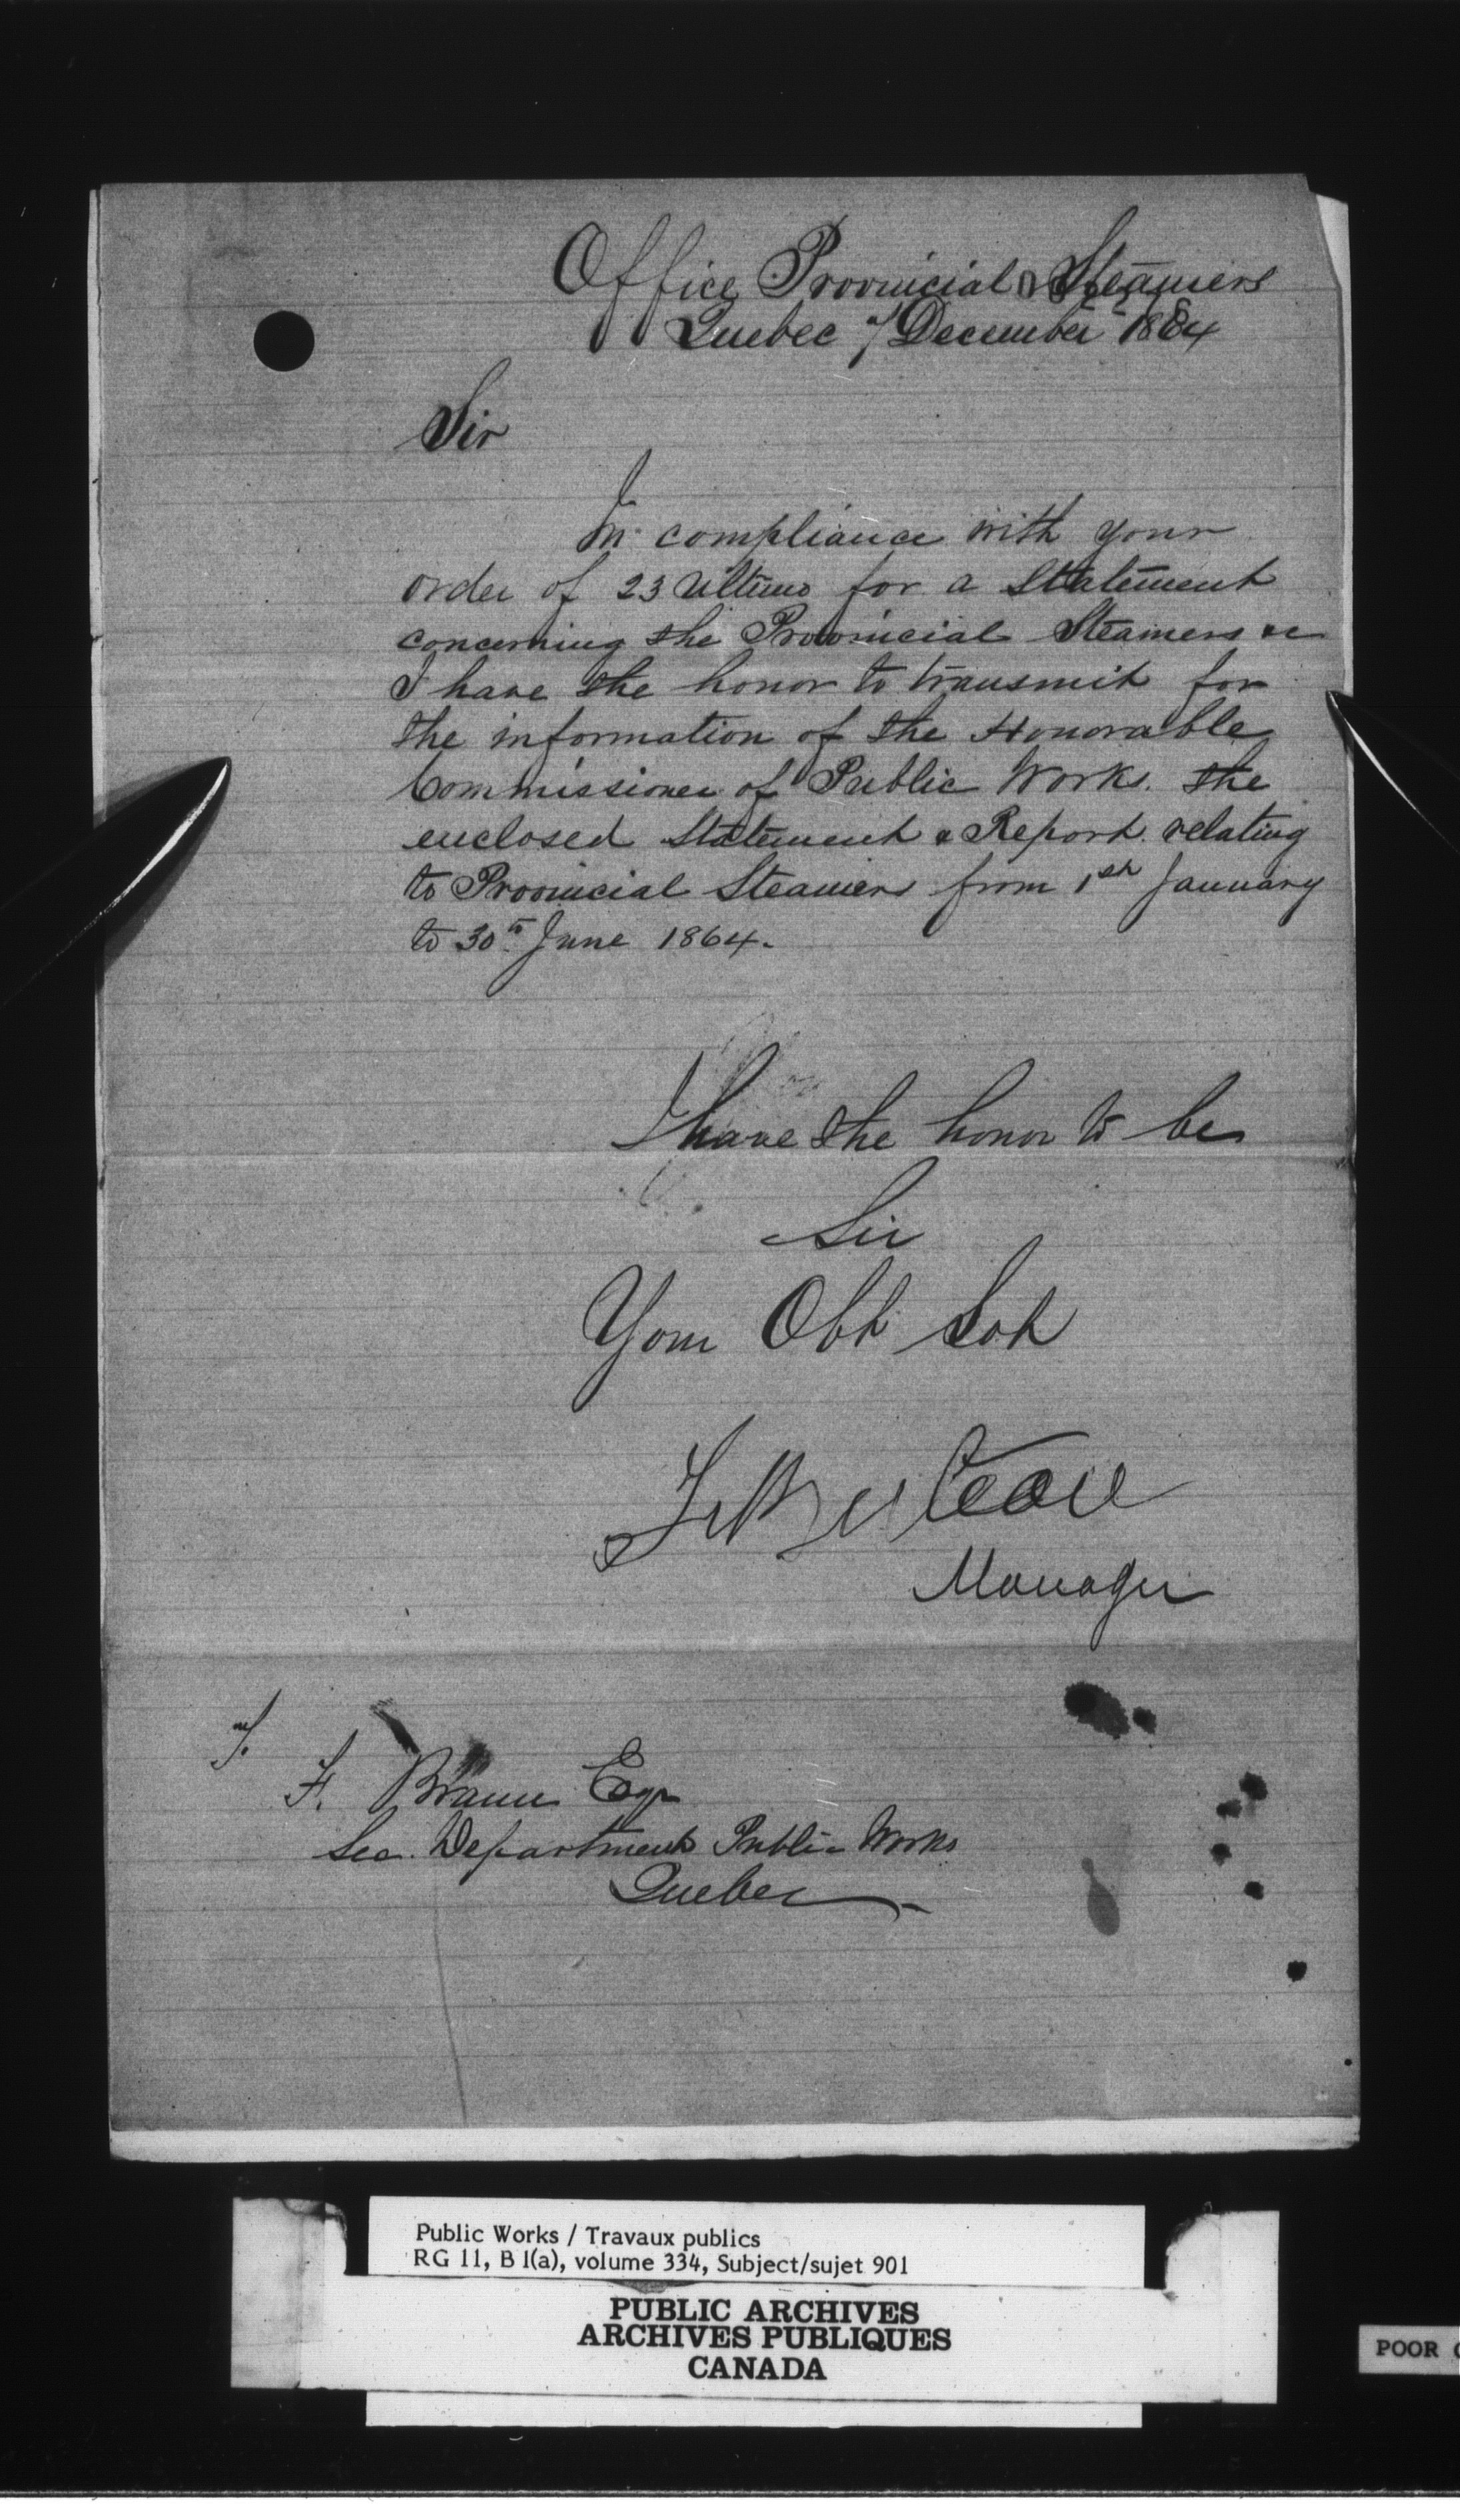 Office Provinicial Steamers
Quebec 7 December 1864
Sir
In compliance with your
order of 23 Ultimo for a Statement
concerning the Provinicial Steamers &c
I have the honor to transmit for
the information of the Honorable
Commissioner of Public Works. the
enclosed Statement & Report relating
to Provinicial Steamers from 1st January
to 30th June 1864.
I have the honor to be
Sir
Your Obt Svt
Manager
F. Braun Esqr
Sec. Department Public Works
Quebec
Public Works / Travaux publics
RG 11, B 1(a), volume 334, Subject/sujet 901
PUBLIC ARCHIVES
ARCHIVES PUBLIQUES
CANADA
POOR